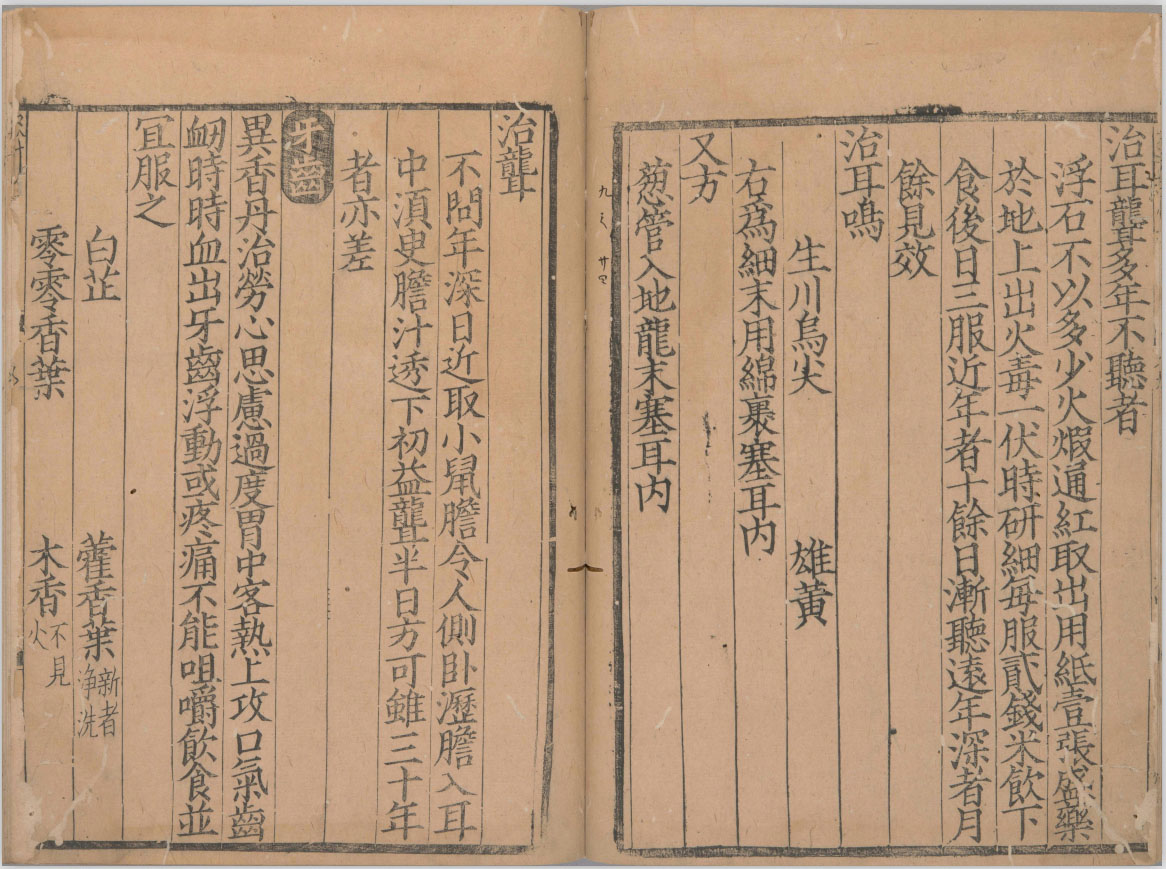 治耳聾多年不聽者
浮石不以多少火煆通紅取出用紙壹張盛藥
於地上出火毒一伏時研細每服貳錢米飲下
食後日三服近年者十餘日漸聽遠年深者月
餘見效
治耳鳴
生川烏尖 雄黃
右爲細末用綿裹塞耳内
又方
葱管入地龍末塞耳内
治聾
不問年深日近取小鼠膽令人側卧瀝膽入耳
中湏史膽汁透下初益聾半日方可雖三十年
者亦差
牙齒
異香丹治勞心思慮過度胃中客熱上攻口氣齒
衂時時血出牙齒浮動或疼痛不能咀嚼飲食並
冝服之
白芷 藿香葉新者净洗
零零香葉 木香不見火